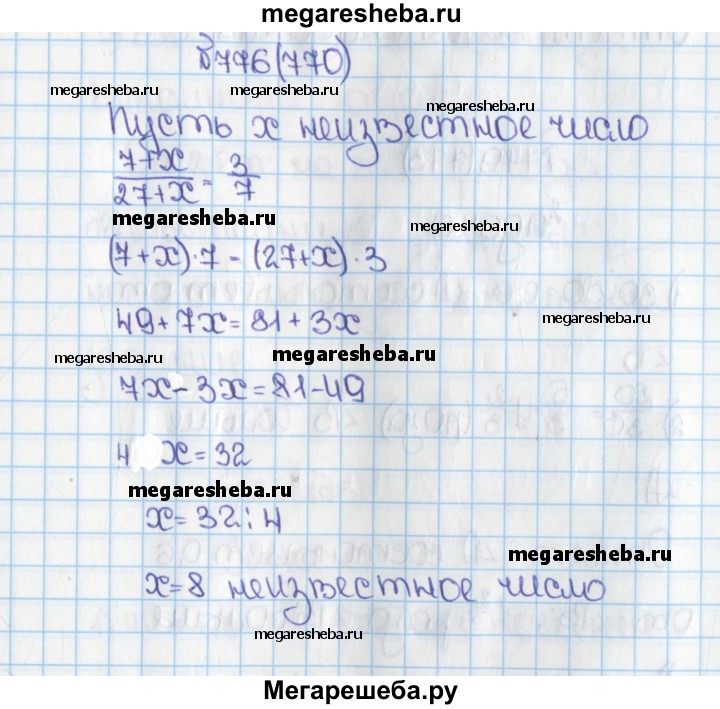 megaresheba.ru
№776(770)
megaresheba.ru megaresheba.ru megaresheba.ru
Пусть x неизвестное число
7+x / 27+x = 3 / 7
megaresheba.ru megaresheba.ru
(7+x)·7 = (27+x)·3
49+7x=81+3x megaresheba.ru
megaresheba.ru megaresheba.ru
7x-3x=81-49
4 x=32
megaresheba.ru
x=32:4
megaresheba.ru
x=8 неизвестное число
megaresheba.ru
Мегарешеба.ру